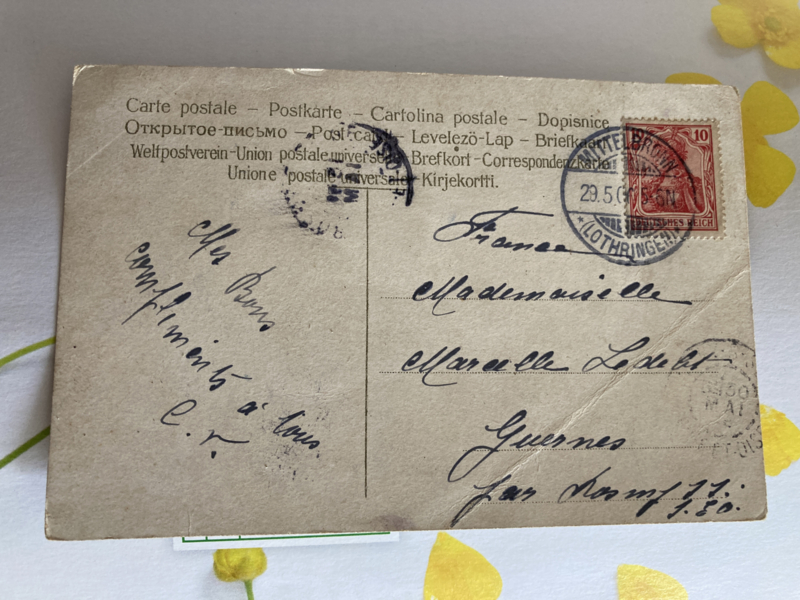 Carte postale – Postkarte – Cartolina postale – Dopisnice
Открытое письмо – Post-card – Levelezö-Lap – Briefkaart
Weltpostverein-Union postale universelle – Brefkort-Correspondenzkarte
Unione postale universale – Kirjekortti.
10
DEUTSCHES REICH
29.5.0
*(LOTHRINGEN)
Mes Bons
compliments
à tous
C. r.
France
Mademoiselle
Marcelle
Guernes
par
30
MAI